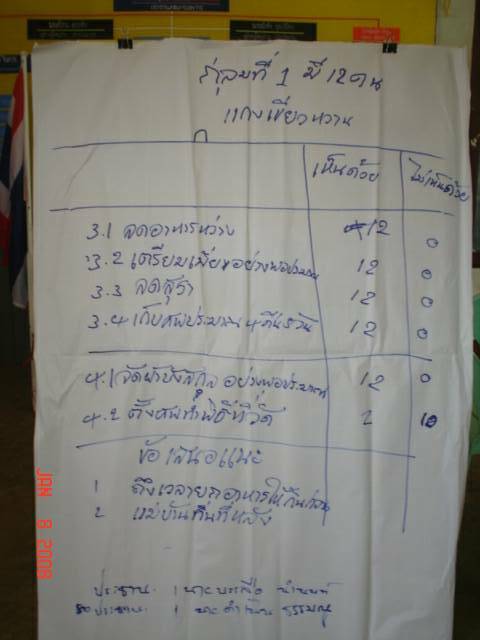 กลุ่มที่ 1 มี 12 คน
แกงเขียวหวาน
เห็นด้วย ไม่เห็นด้วย
3.1 ลดอาหารหว่าง 12 0
3.2 เตรียมเมี่ยงอย่างพอประมาณ 12 0
3.3 ลดสุรา 12 0
3.4 เก็บศพประมาณ 4 คืน 5 วัน 12 0
4.1 จัดผ้าบังสุกุลอย่างพอประมาณ 12 0
4.2 ตั้งศพทำพิธีที่วัด 2 10
ข้อเสนอแนะ
1 ถึงเวลายกอาหารให้กินก่อน
2 แม่บ้านกินทีหลัง
ประธาน 1 นาย
รองประธาน 1 นาย
JAN 8 2008